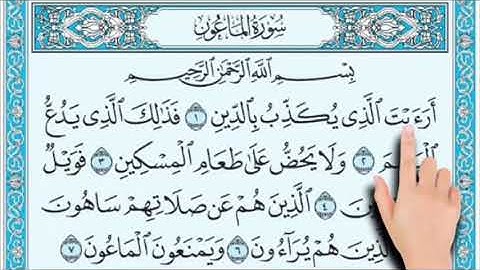 سُورَةُ الْمَاعُونِ
بِسْمِ ٱللَّهِ ٱلرَّحْمَٰنِ ٱلرَّحِيمِ
أَرَءَيْتَ ٱلَّذِى يُكَذِّبُ بِٱلدِّينِ ١ فَذَٰلِكَ ٱلَّذِى يَدُعُّ
٢ وَلَا يَحُضُّ عَلَىٰ طَعَامِ ٱلْمِسْكِينِ ٣ فَوَيْلٌ
٤ ٱلَّذِينَ هُمْ عَن صَلَاتِهِمْ سَاهُونَ
هُمْ يُرَآءُونَ ٦ وَيَمْنَعُونَ ٱلْمَاعُونَ ٧